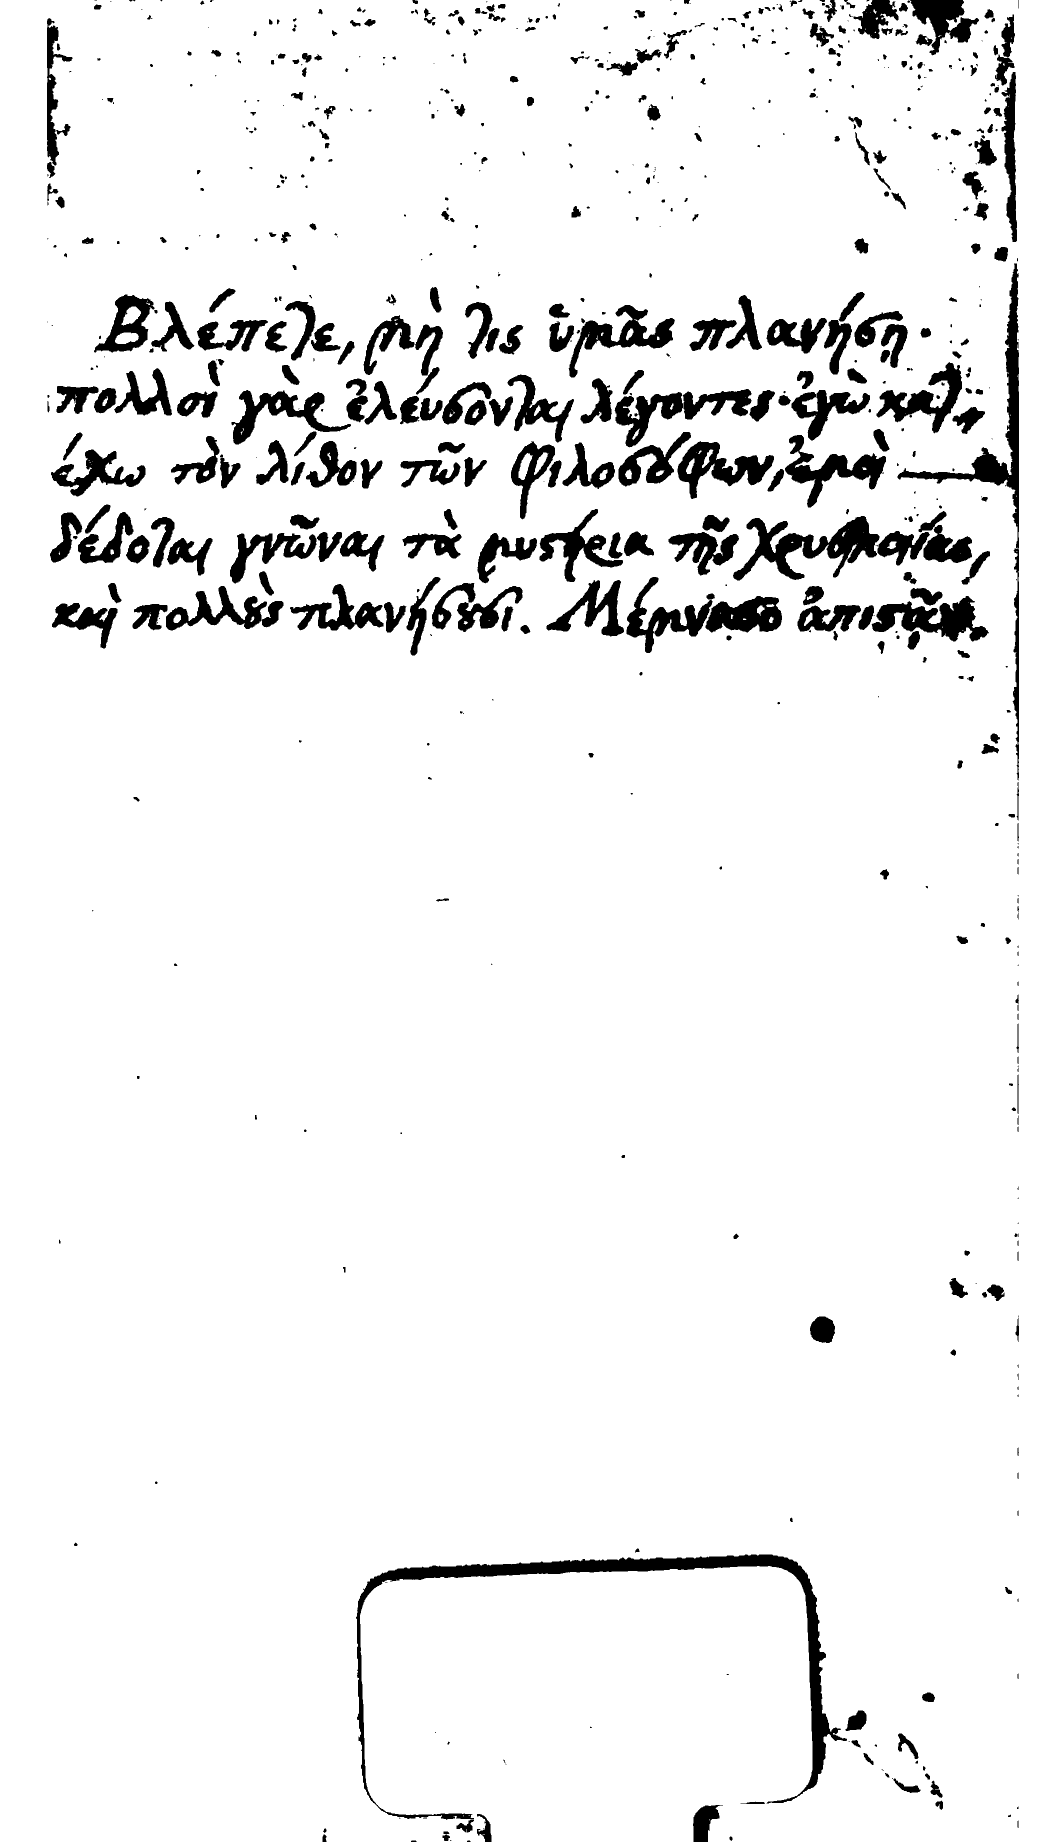 Βλέπετε, μὴ τις ὑμᾶς πλανήσῃ·
πολλοὶ γὰρ ἐλεύσονται λέγοντες· ἐγὼ
έχω τὸν λίθον τῶν φιλοσόφων, ἐμοὶ
δέδοται γνῶναι τὰ μυστήρια τῆς
καὶ πολλοὺς πλανήσουσι. Μέμνασο ἀπιστᾶν.